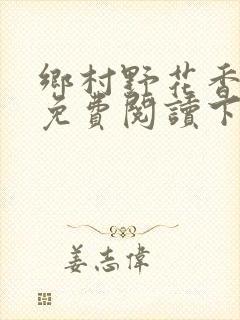 鄉村野花香
免費閱讀下
姜志偉